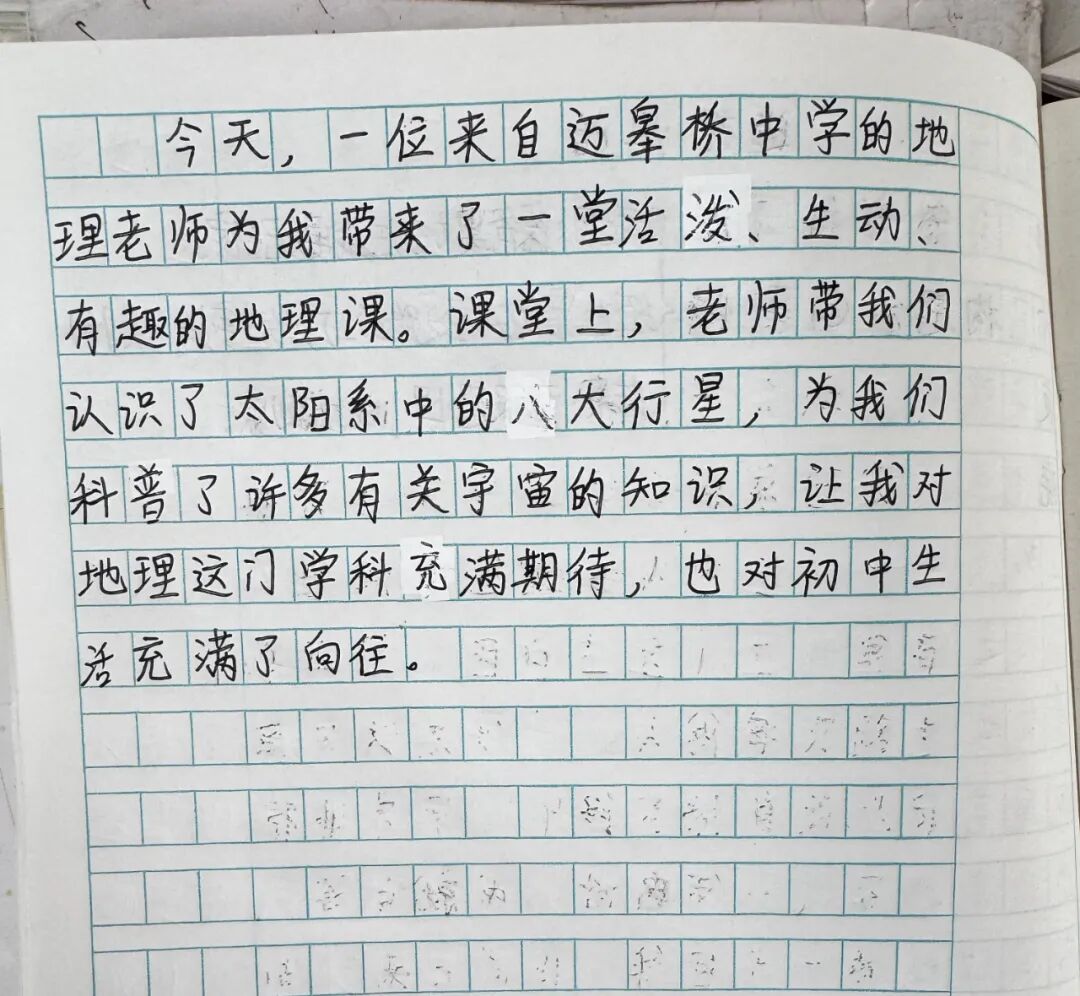 今天，一位来自迈皋桥中学的地
理老师为我带来了一堂活泼、生动、
有趣的地理课。课堂上，老师带我们
认识了太阳系中的八大行星，为我们
科普了许多有关宇宙的知识，让我对
地理这门学科充满期待，也对初中生
活充满了向往。